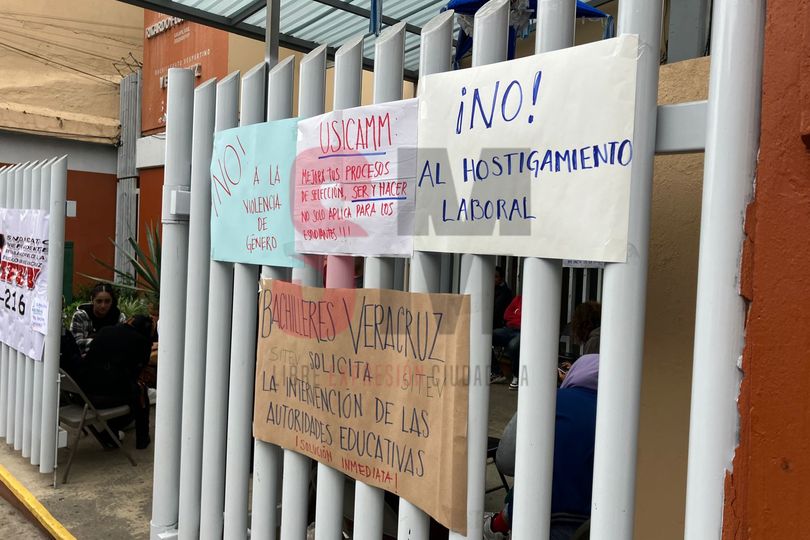 RICARDO
BACHILLERATO VESPERTINO
VE
SINDICATO
-216
¡NO!
A LA
VIOLENCIA
DE
GÉNERO
USICAMM
MEJORA TUS PROCESOS
DE SELECCIÓN, SER Y HACER
NO SOLO APLICA PARA LOS
ESTUDIANTES !!!
¡NO!
AL HOSTIGAMIENTO
LABORAL
BACHILLERES VERACRUZ
SITEV SOLICITA SITEV
LA INTERVENCIÓN DE LAS
AUTORIDADES EDUCATIVAS
¡SOLUCIÓN INMEDIATA!
LIBRE EXPRESIÓN CIUDADANA